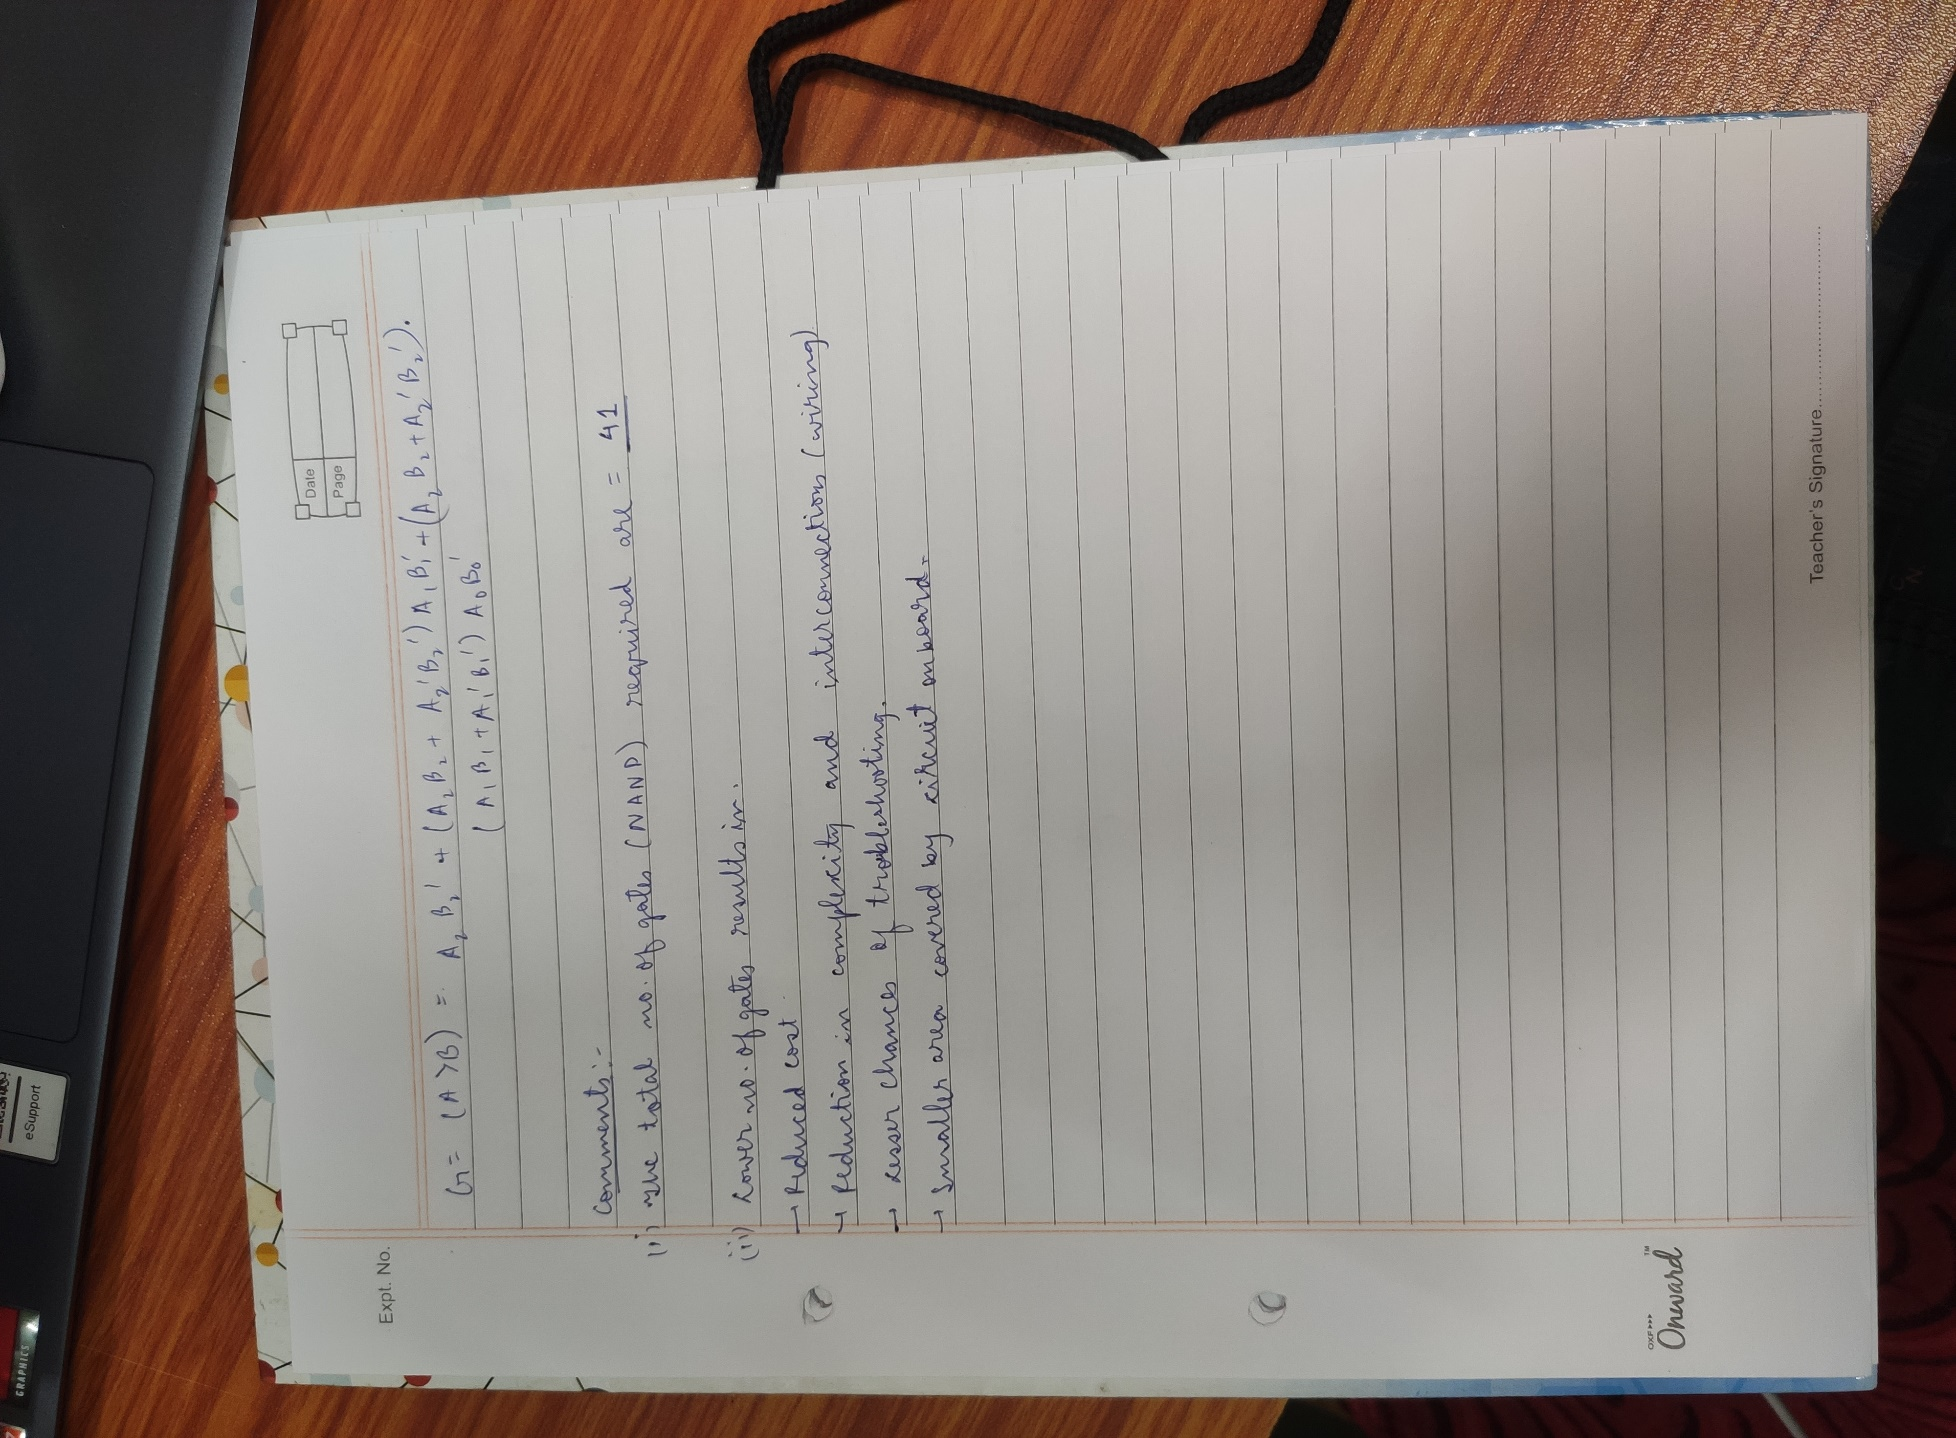 Date
Page
Expt. No.
G = (A>B) = A₂B₂' + (A₂B₂ + A₂'B₂')A₁B₁' + (A₂B₂ + A₂'B₂').
(A₁B₁ + A₁'B₁') A₀B₀'
Comments:-
(i) The total no. of gates (NAND) required are = 41
(ii) Lower no. of gates results in.
→ Reduced cost.
→ Reduction in complexity and interconnections (wiring)
→ Lesser chances of troubleshooting.
→ Smaller area covered by circuit on board.
Teacher's Signature
OXF
Onward™
eSupport
GRAPHICS